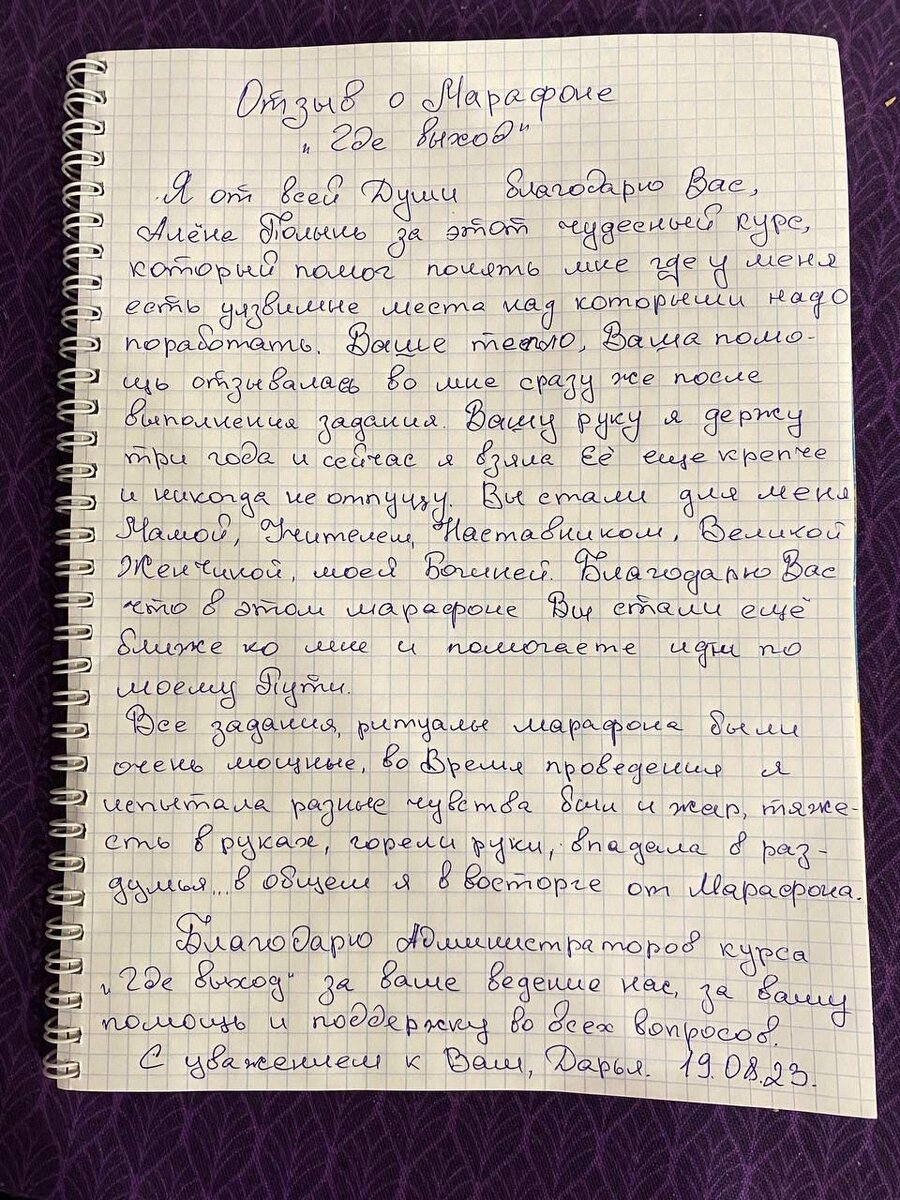 Отзыв о Марафоне
„Где выход"
Я от всей Души благодарю Вас,
Алёна Полынь за этот чудесный курс,
который помог понять мне где у меня
есть уязвимые места над которыми надо
поработать. Ваше тепло, Ваша помо-
щь отзывалась во мне сразу же после
выполнения задания. Вашу руку я держу
три года и сейчас я взяла её еще крепче
и никогда не отпущу. Вы стали для меня
Мамой, Учителем, Наставником, Великой
Женчиной, моей Богиней. Благодарю Вас
что в этом марафоне Вы стали ещё
ближе ко мне и помогаете идти по
моему Пути.
Все задания, ритуалы марафона были
очень мощные, во Время проведения я
испытала разные чувства были и жар, тяже-
сть в руках, горели руки, впадала в раз-
думья... в общем я в восторге от Марафона.
Благодарю Администраторов курса
„Где выход" за ваше ведение нас, за вашу
помощь и поддержку во всех вопросов.
С уважением к Вам, Дарья. 19.08.23.